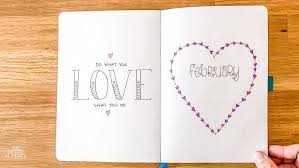 DO WHAT YOU
LOVE
WHAT YOU DO
february